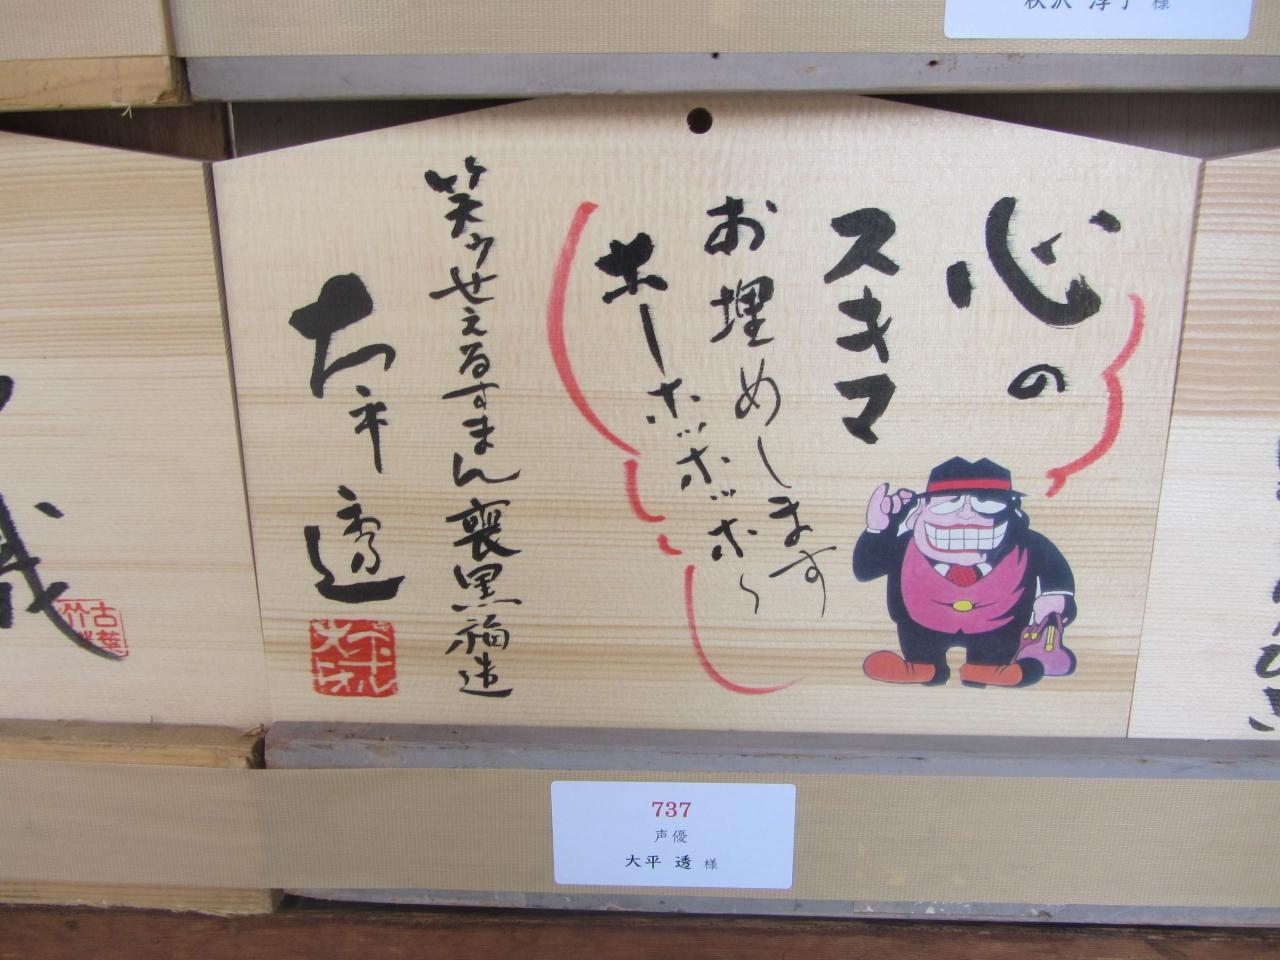 心の
スキマ
お埋めします
ホーホッホッホ〜
笑ゥせぇるすまん 喪黒福造
大平透
737
声優
大平 透 様
古葉